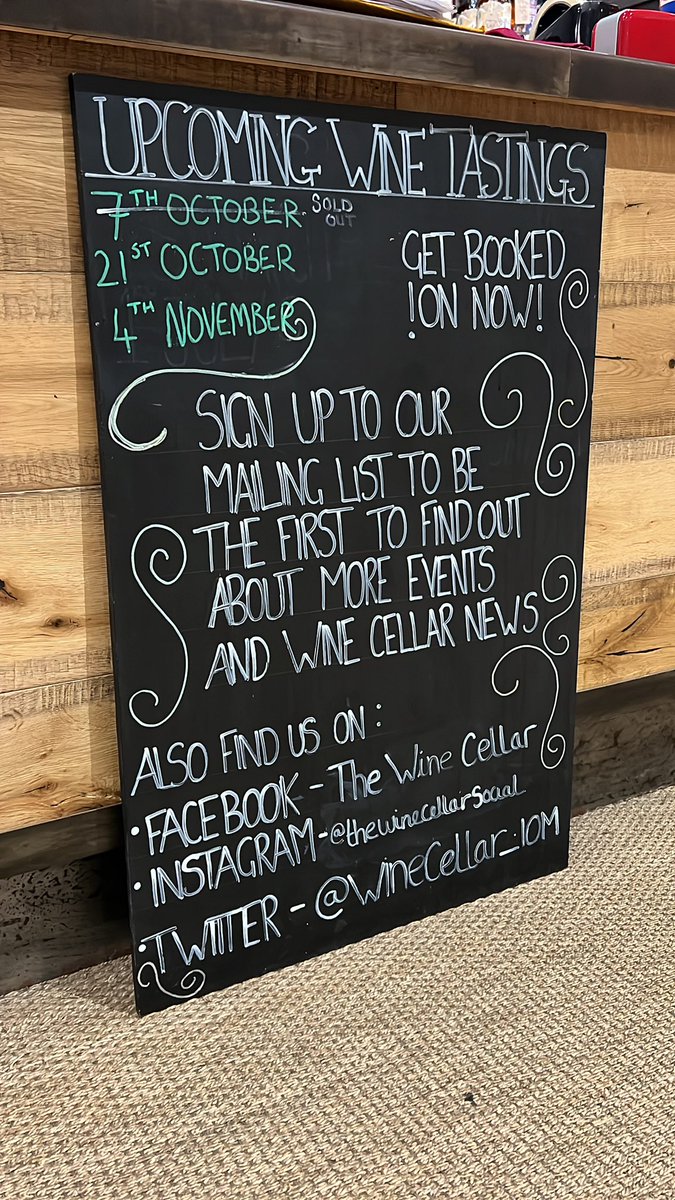 UPCOMING WINE TASTINGS
7TH OCTOBER SOLD OUT
21ST OCTOBER
4TH NOVEMBER
GET BOOKED
!ON NOW!
SIGN UP TO OUR
MAILING LIST TO BE
THE FIRST TO FIND OUT
ABOUT MORE EVENTS
AND WINE CELLAR NEWS
ALSO FIND US ON :
• FACEBOOK - The Wine Cellar
• INSTAGRAM - @thewinecellarsocial
• TWITTER - @WineCellar_IOM